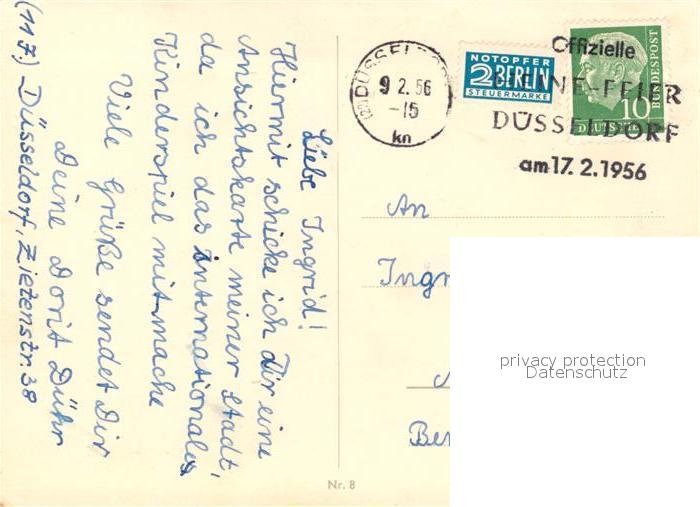 Liebe Ingrid!
Hiermit schicke ich Dir eine
Ansichtskarte meiner Stadt,
da ich das Internationales
Kinderspiel mitmache
Viele Grüße sendet Dir
Deine Dorit Dühr
(117.) Düsseldorf, Zietenstr. 38
DÜSSELDORF
9 2. 56
–15
kn
NOTOPFER
2 BERLIN
STEUERMARKE
Offizielle
HEINE-FEIER
DÜSSELDORF
am 17. 2. 1956
BUNDESPOST
10
DEUTSCHE
An
Ingr
privacy protection
Datenschutz
Be
Nr. 8